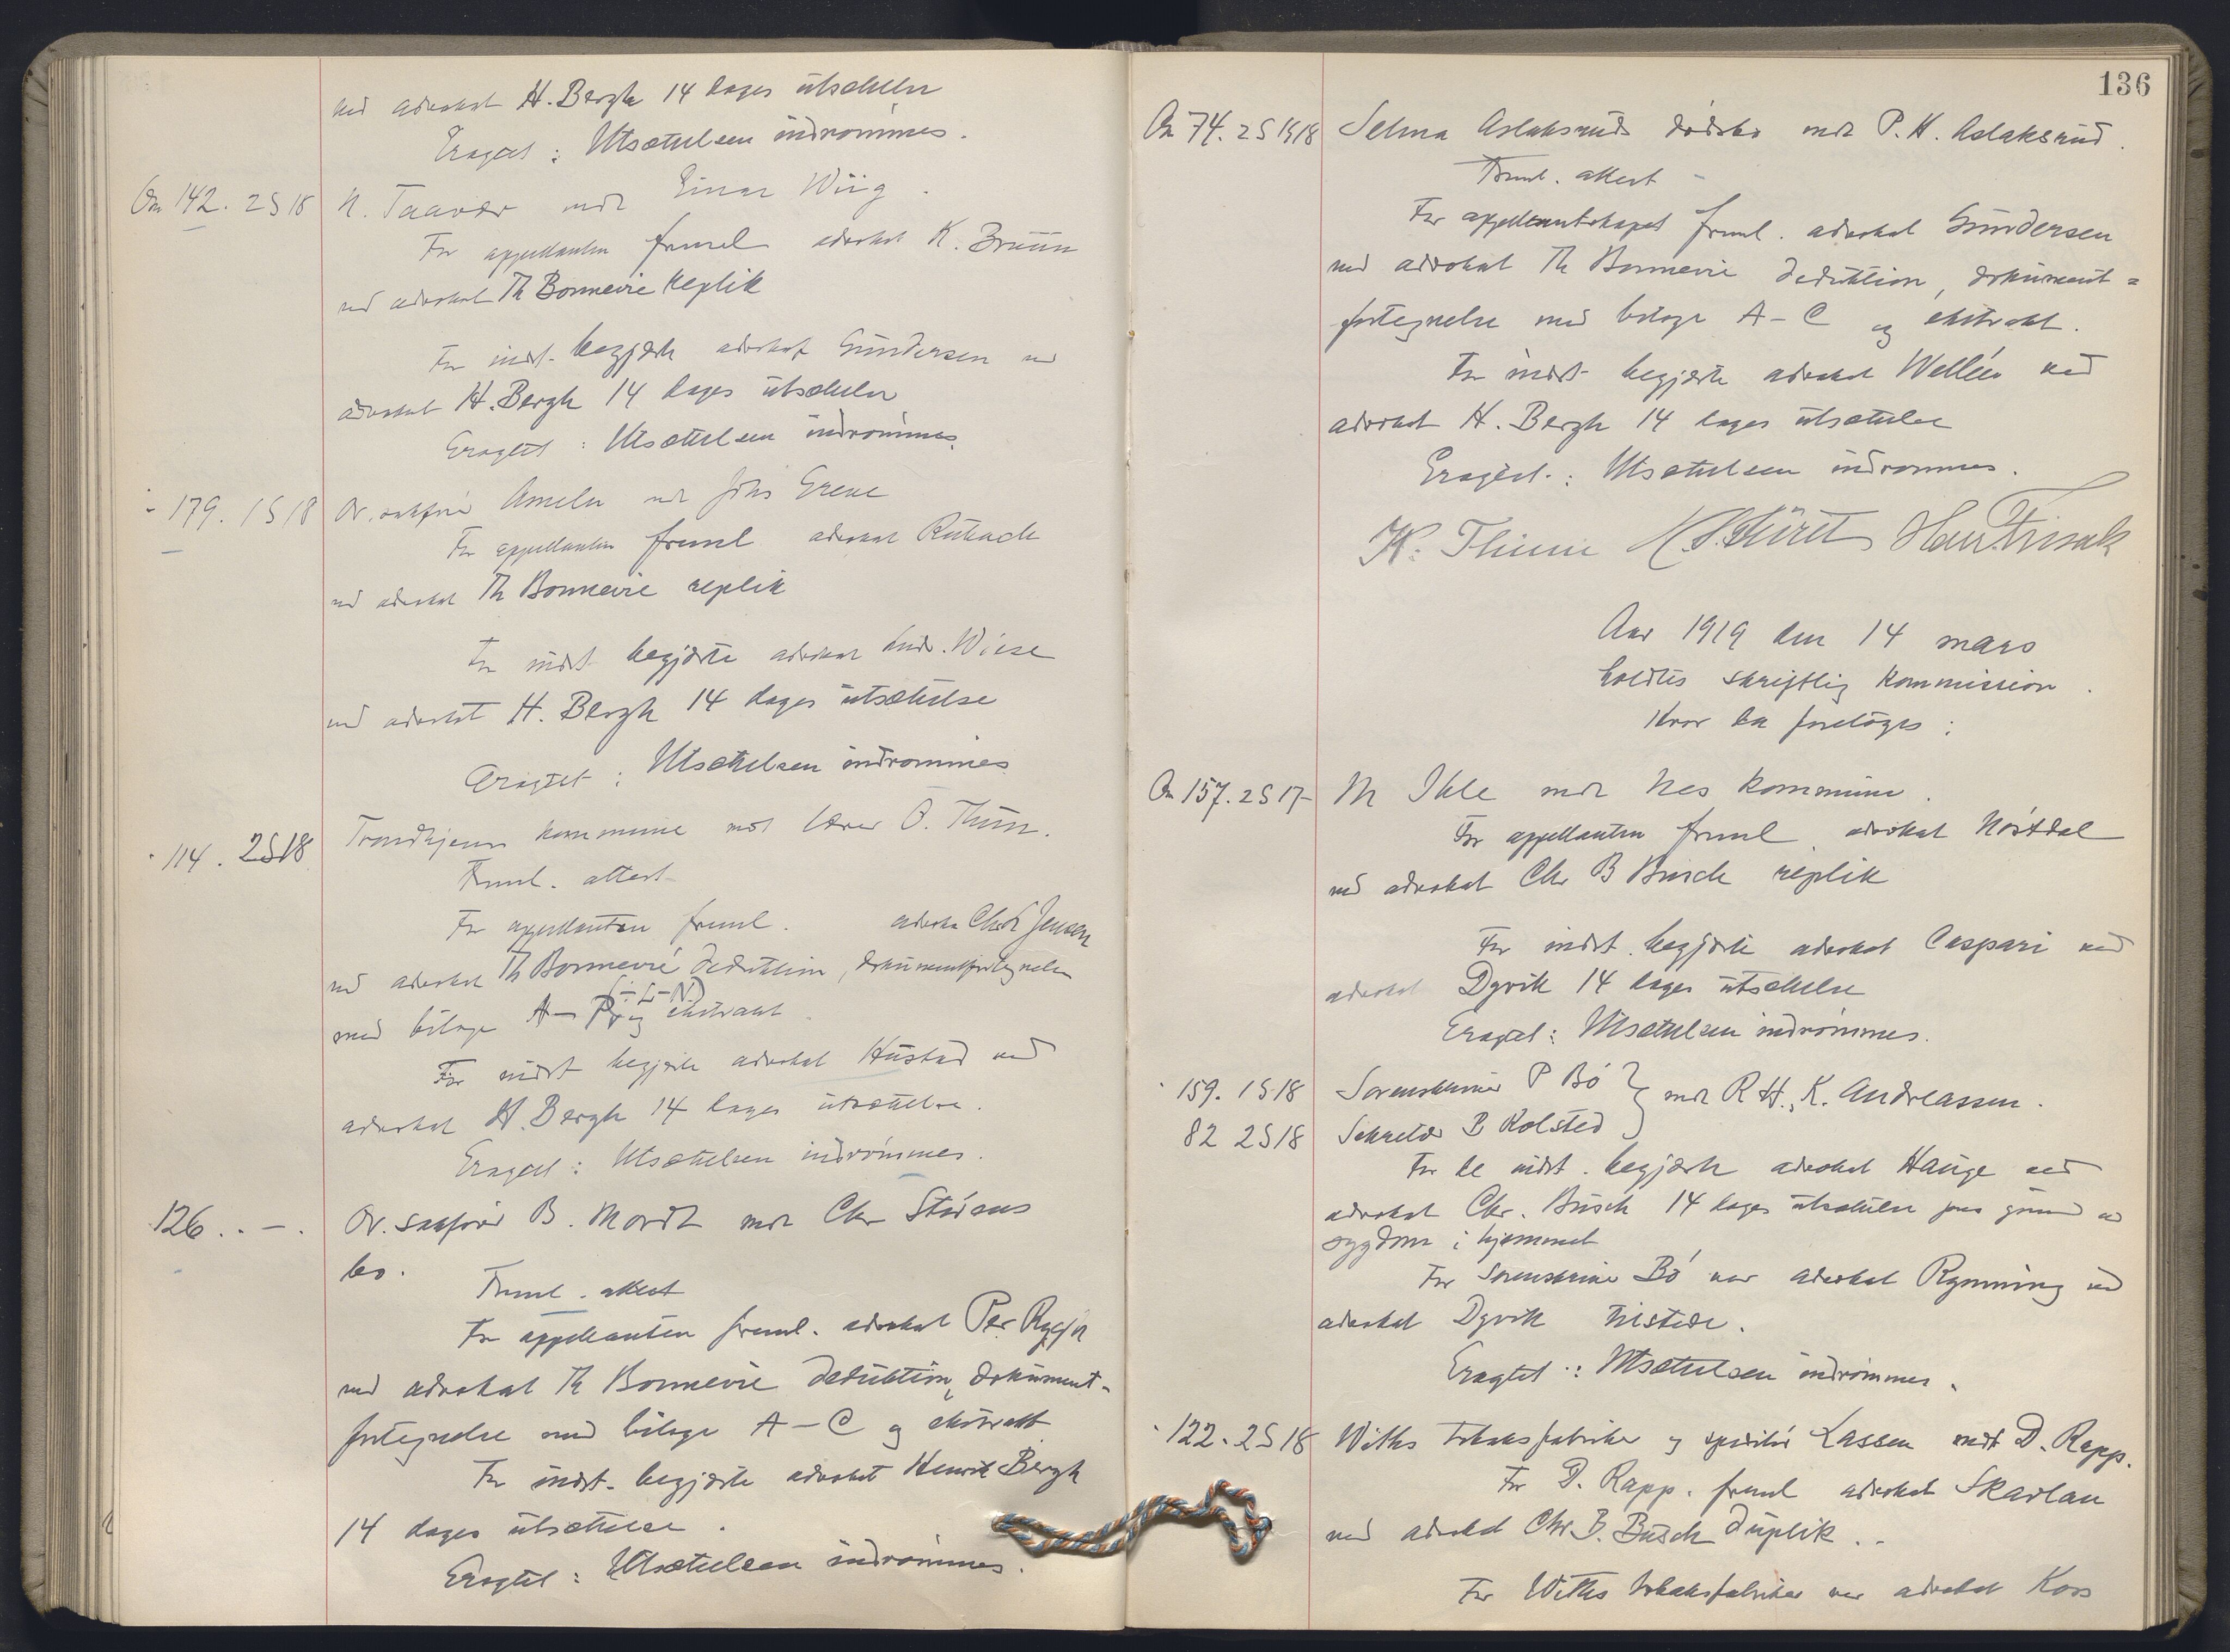 ved advokat H. Bergh 14 dages utsættelse
Eragtet: Utsættelsen indrømmes.
On 142. 2S18 N. Taaver mot Einar Wiig.
For appellanten freml advokat K. Bruun
ved advokat Th Bonnevie replik
For indst. begjærte advokat Gundersen ved
advokat H. Bergh 14 dages utsættelse
Eragtet: Utsættelsen indrømmes.
- 179. 1S18 Or. sakfører Ameln mot Johs Greve
For appellanten freml advokat
ved advokat Th Bonnevie replik
For indst begjærte advokat Andr. Wiese
ved advokat H. Bergh 14 dages utsættelse
Eragtet: Utsættelsen indrømmes
- 114. 2S18 Trondhjems kommune mot lærer O. Thun.
Freml. attest
For appellanten freml. advokat Chr Jensen
ved advokat Th Bonnevie deduktion, dokumentfortegnelse
med bilage A-P (÷L-N) og ekstrakt
For indst begjærte advokat Hustad ved
advokat H. Bergh 14 dages utsættelse.
Eragtet: Utsættelsen indrømmes.
- 126. . - . Or. sakfører B. Mordt mot Chr
bo.
Freml. attest
For appellanten freml. advokat Per Rygh
ved advokat Th Bonnevie deduktion, dokument-
fortegnelse med bilage A-C og ekstrakt
For indst. begjærte advokat Henrik Bergh
14 dages utsættelse.
Eragtet: Utsættelsen indrømmes.
136
On 74. 2S 18 Selma Aslaksruds dødsbo mot P. H. Aslaksrud.
Freml. attest -
For appellantskapet freml. advokat Gundersen
ved advokat Th Bonnevie deduktion, dokument=
fortegnelse med bilage A-C og ekstrakt.
For indst begjærte advokat Wellén ved
advokat H. Bergh 14 dages utsættelse
Eragtet.: Utsættelsen indrømmes.
K. Thinn
Aar 1919 den 14 mars
holdtes skriftlig kommission.
Hvor da foretoges:
On 157. 2S17- M Ihle mot Nes kommune.
For appellanten freml. advokat Nøstdal
ved advokat Chr B Busch replik
For indst. begjærte advokat Caspari ved
advokat Dyvik 14 dages utsættelse
Eragtet: Utsættelsen indrømmes.
- 159. 1S18 Sorenskriver P Bö } mot R H., K. Andreassen.
82 2S18 Sekretær B Kolsted
For de indst. begjærte advokat Hauge ved
advokat Chr. Busch 14 dages utsættelse paa grund av
sygdom i hjemmet
For sorenskriver Bö var advokat Rynning ved
advokat Dyvik tilstede.
Eragtet.: Utsættelsen indrømmes.
- 122. 2S18 Witks tobaksfabriker og speditør Lassen mot D. Rapp.
For D. Rapp. freml advokat Skavlan
ved advokat Chr. B. Busch duplik..
For Witks tobaksfabriker var advokat Koss